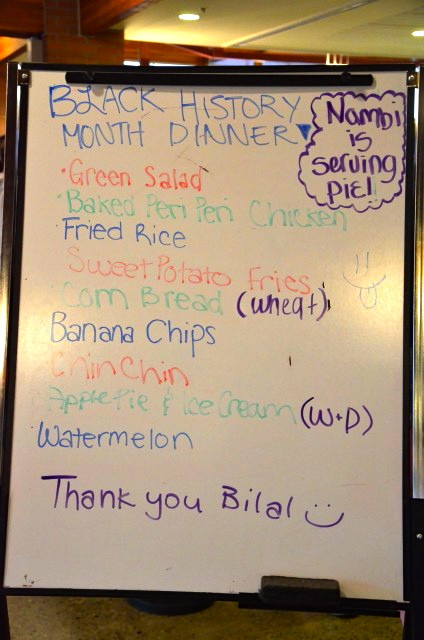 BLACK HISTORY
MONTH DINNER
Nambi
is
serving
PiE!
• Green Salad
• Baked Peri Peri Chicken
Fried Rice
Sweet Potato Fries
Corn Bread (wheat)
Banana Chips
Chin Chin
Apple Pie & Ice Cream (W+D)
Watermelon
Thank you Bilal